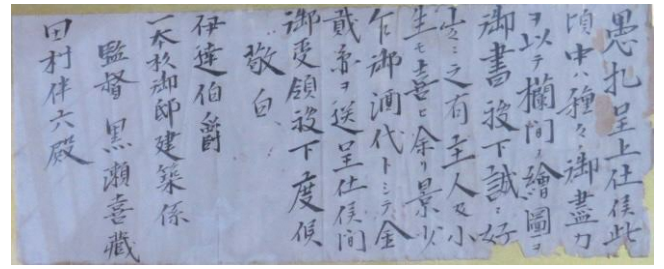 愚札呈上仕侯此
頃中ハ種々御盡力
ヲ以テ欄間ノ繪圖ヲ
御書被下誠ニ好
出ニ之有主人及小
生モ喜ヒ余リ景少
乍御酒代トシテ金
貳
ヲ送呈仕侯間
御受領被下度侯
敬白
伊達伯爵
一本杉御邸建築係
監督 黒瀬喜藏
田村伴六殿